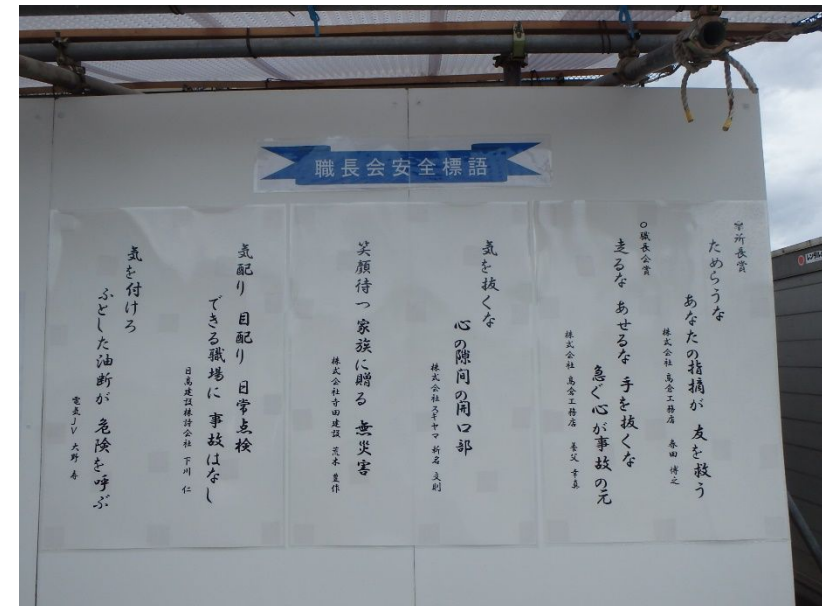 職長会安全標語
所長賞
ためらうな
あなたの指摘が 友を救う
株式会社 髙倉工務店 春田 博之
○職長会賞
走るな あせるな 手を抜くな
急ぐ心が事故の元
株式会社 髙倉工務店 養父 幸真
気を抜くな
心の隙間の開口部
株式会社スギヤマ 新名 文則
笑顔待つ 家族に贈る 無災害
株式会社寺田建設 荒木 豊作
気配り 目配り 日常点検
できる職場に 事故はなし
日髙建設株詩会社 下川 仁
気を付けろ
ふとした油断が 危険を呼ぶ
電気JV 大野 寿